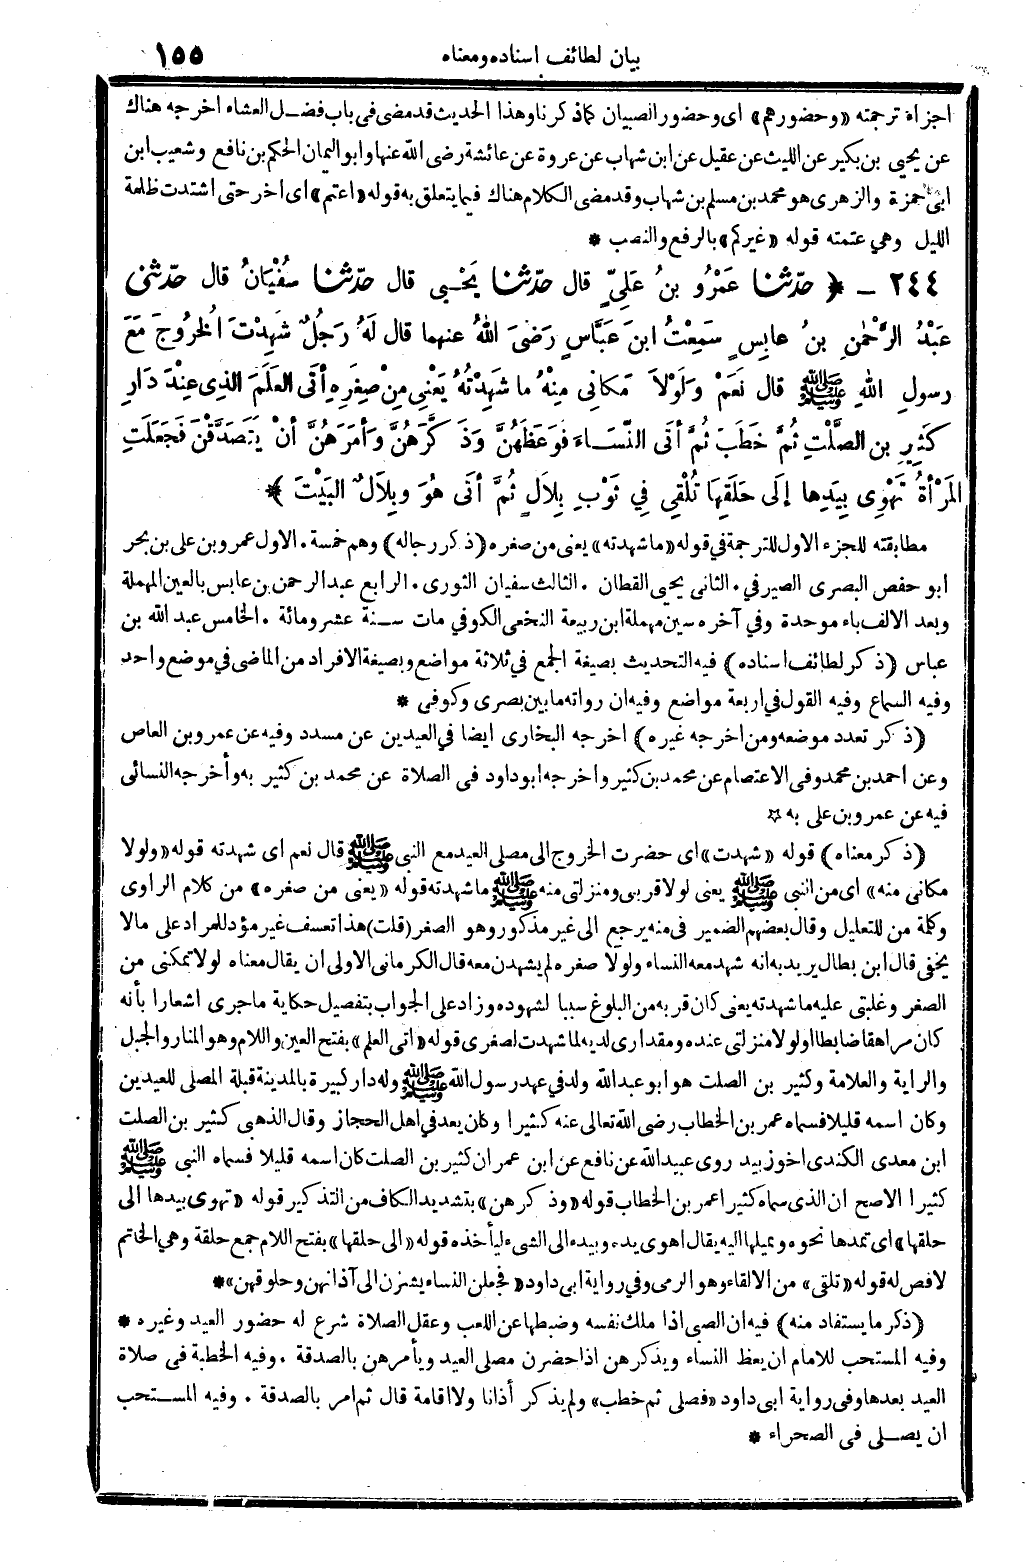 بيان لطائف اسناده ومعناه
١٥٥
اجزاء ترجمته «وحضورهم» اى وحضور الصبيان كما ذكرنا وهذا الحديث قد مضى فى باب فضل العشاء اخرجه هناك
عن يحيى بن بكير عن الليث عن عقيل عن ابن شهاب عن عروة عن عائشة رضى الله عنها وابو اليمان الحكم بن نافع وشعيب ابن
ابى حمزة والزهرى هو محمد بن مسلم بن شهاب وقد مضى الكلام هناك فيما يتعلق به قوله «اعتم» اى اخر حتى اشتدت ظلمة
الليل وهي عتمته قوله «غيركم» بالرفع والنصب *
٢٤٤ ـ ﴿ حدّثنا عَمْرُو بنُ عَلِيٍّ قال حدّثنا يَحْيى قال حدّثنا سُفْيَانُ قال حدّثنى
عَبْدُ الرَّحْمٰنِ بنُ عابِسٍ سَمِعْتُ ابنَ عَبَّاسٍ رَضىَ اللهُ عنهما قال لَهُ رَجُلٌ شَهِدْتَ الخُرُوجَ مَعَ
رسولِ اللهِ ﷺ قال نَعَمْ وَلَوْلاَ مَكانِي مِنْهُ ما شَهِدْتُهُ يَعْنِى مِنْ صِغَرِهِ أتَى العَلَمَ الذِى عِنْدَ دَارِ
كَثِيرِ بنِ الصَّلْتِ ثُمَّ خَطَبَ ثُمَّ أتَى النِّسَاءَ فَوَعَظَهُنَّ وَذَكَّرَهُنَّ وَأمَرَهُنَّ أنْ يَتَصَدَّقْنَ فَجَعَلَتِ
المَرْأةُ تَهْوِى بِيَدِها إلَى حَلَقِهَا تُلْقِي فِي ثَوْبِ بِلاَلٍ ثُمَّ أتَى هُوَ وبِلاَلٌ البَيْتَ ﴾
مطابقته للجزء الاول للترجمة في قوله «ما شهدته» يعنى من صغره (ذكر رجاله) وهم خمسة. الاول عمرو بن على بن بحر
ابو حفص البصرى الصيرفي. الثانى يحيى القطان. الثالث سفيان الثورى. الرابع عبد الرحمن بن عابس بالعين المهملة
وبعد الالف باء موحدة وفي آخره سين مهملة ابن ربيعة النخعى الكوفي مات سنة عشر ومائة. الخامس عبد الله بن
عباس (ذكر لطائف اسناده) فيه التحديث بصيغة الجمع في ثلاثة مواضع وبصيغة الافراد من الماضى في موضع واحد
وفيه السماع وفيه القول في اربعة مواضع وفيه ان رواته ما بين بصرى وكوفى *
(ذكر تعدد موضعه ومن اخرجه غيره) اخرجه البخارى ايضا في العيدين عن مسدد وفيه عن عمرو بن العاص
وعن احمد بن محمد وفى الاعتصام عن محمد بن كثير واخرجه ابو داود فى الصلاة عن محمد بن كثير به وأخرجه النسائى
فيه عن عمرو بن على به ☆
(ذكر معناه) قوله «شهدت» اى حضرت الخروج الى مصلى العيد مع النبى ﷺ قال نعم اى شهدته قوله «ولولا
مكانى منه» اى من النبى ﷺ يعنى لولا قربى ومنزلتى منه ﷺ ما شهدته قوله «يعنى من صغره» من كلام الراوى
وكلمة من للتعليل وقال بعضهم الضمير فى منه يرجع الى غير مذكور وهو الصغر (قلت) هذا تعسف غير مؤد للمراد على مالا
يخفى قال ابن بطال يريد به انه شهد معه النساء ولولا صغره لم يشهدن معه قال الكرمانى الاولى ان يقال معناه لولا تمكنى من
الصغر وغلبتى عليه ما شهدته يعنى كان قربه من البلوغ سببا لشهوده وزاد على الجواب بتفصيل حكاية ما جرى اشعارا بأنه
كان مراهقا ضابطا او لولا منزلتى عنده ومقدارى لديه لما شهدت لصغرى قوله «اتى العلم» بفتح العين واللام وهو المنار والجبل
والراية والعلامة وكثير بن الصلت هو ابو عبد الله ولد في عهد رسول الله ﷺ وله دار كبيرة بالمدينة قبلة المصلى للعيدين
وكان اسمه قليلا فسماه عمر بن الخطاب رضى الله تعالى عنه كثيرا وكان يعد في اهل الحجاز وقال الذهبى كثير بن الصلت
ابن معدى الكندى اخو زبيد روى عبيد الله عن نافع عن ابن عمر ان كثير بن الصلت كان اسمه قليلا فسماه النبى ﷺ
كثيرا الاصح ان الذى سماه كثيرا عمر بن الخطاب قوله «وذكرهن» بتشديد الكاف من التذكير قوله «تهوى بيدها الى
حلقها» اى تمدها نحوه وتميلها اليه يقال اهوى يده وبيده الى الشىء ليأخذه قوله «الى حلقها» بفتح اللام جمع حلقة وهي الخاتم
لا فص له قوله «تلقى» من الالقاء وهو الرمى وفي رواية ابى داود «فجعلن النساء يشزن الى آذانهن وحلوقهن» *
(ذكر ما يستفاد منه) فيه ان الصبى اذا ملك نفسه وضبطها عن اللعب وعقل الصلاة شرع له حضور العيد وغيره *
وفيه المستحب للامام ان يعظ النساء ويذكرهن اذا حضرن مصلى العيد ويأمرهن بالصدقة. وفيه الخطبة فى صلاة
العيد بعدها وفى رواية ابى داود «فصلى ثم خطب» ولم يذكر أذانا ولا اقامة قال ثم امر بالصدقة. وفيه المستحب
ان يصلى فى الصحراء *